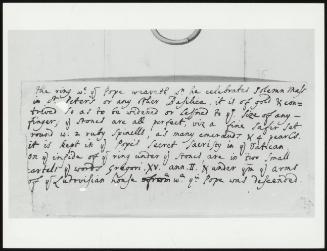 the ring wch ye Pope weareth wn he celebrates Solemn Mass
in St Peters or any other Basilica. it is of gold & con=
trived so as to be widened or lessned to ye size of any =
finger, ye stones are all perfect, viz a fine Safir set
round w. 2 ruby Spinells as many emerauds & 4 pearls.
it is kept in ye Popes Secret Sacristy in ye Vatican
on ye inside of ye ring under ye stones are in two small
cartels ye words Gregori XV. ann. II. & under ym ye arms
of ye Ludovisian house from wch ye Pope was descended